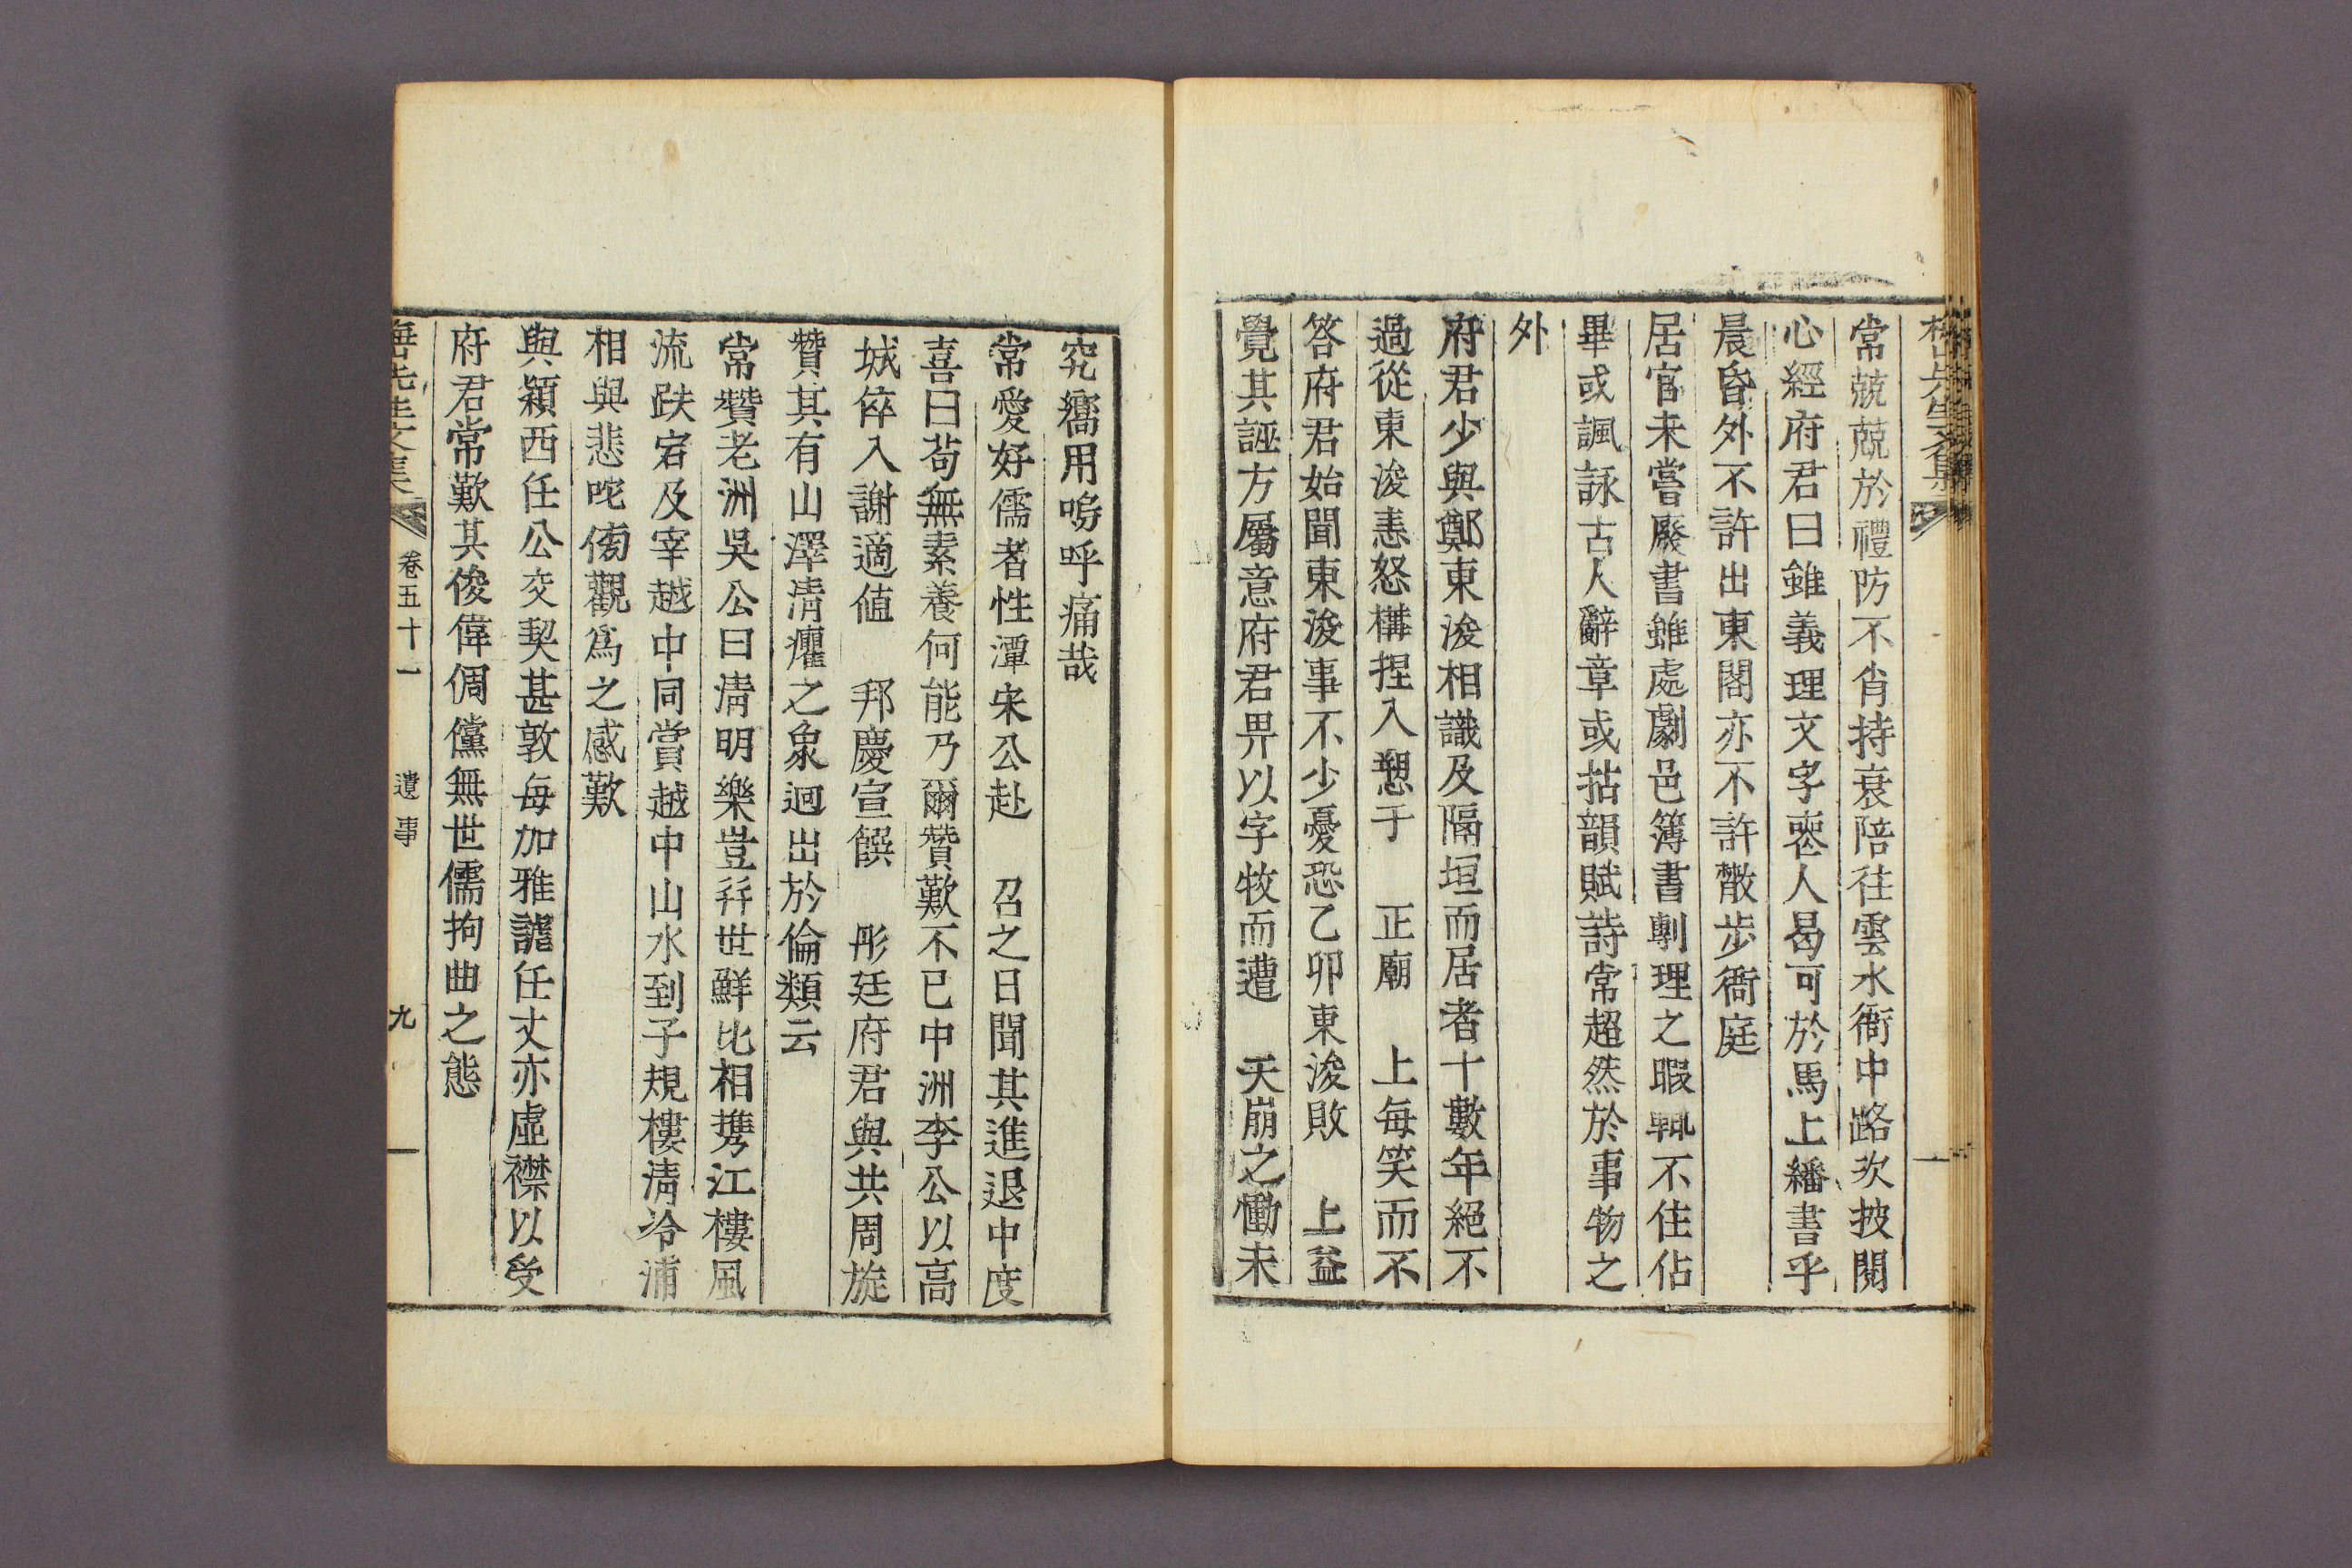 常兢兢於禮防不肖持衰陪往雲水衙中路次披閱
心經府君曰雖義理文字喪人曷可於馬上繙書乎
晨昏外不許出東閣亦不許散步衙庭
居官未嘗廢書雖處劇邑簿書剸理之暇輒不住佔
畢或諷詠古人辭章或拈韻賦詩常超然於事物之
外
府君少與鄭東浚相識及隔垣而居者十數年絕不
過從東浚恚怒構捏入愬于 正廟 上每笑而不
答府君始聞東浚事不少憂恐乙卯東浚敗 上益
覺其誣方屬意府君畀以字牧而遭 天崩之慟未
究嚮用嗚呼痛哉
常愛好儒者性潭宋公赴 召之日聞其進退中度
喜曰苟無素養何能乃爾贊歎不已中洲李公以高
城倅入謝適値 邦慶宣饌 彤廷府君與共周旋
贊其有山澤淸癯之象逈出於倫類云
常贊老洲吳公曰淸明樂豈幷世鮮比相携江樓風
流跌宕及宰越中同賞越中山水到子規樓淸冷浦
相與悲咤傍觀爲之感歎
與潁西任公交契甚敦每加雅謔任丈亦虛襟以受
府君常歎其俊偉倜儻無世儒拘曲之態
先生文集 卷五十一 遺事 九